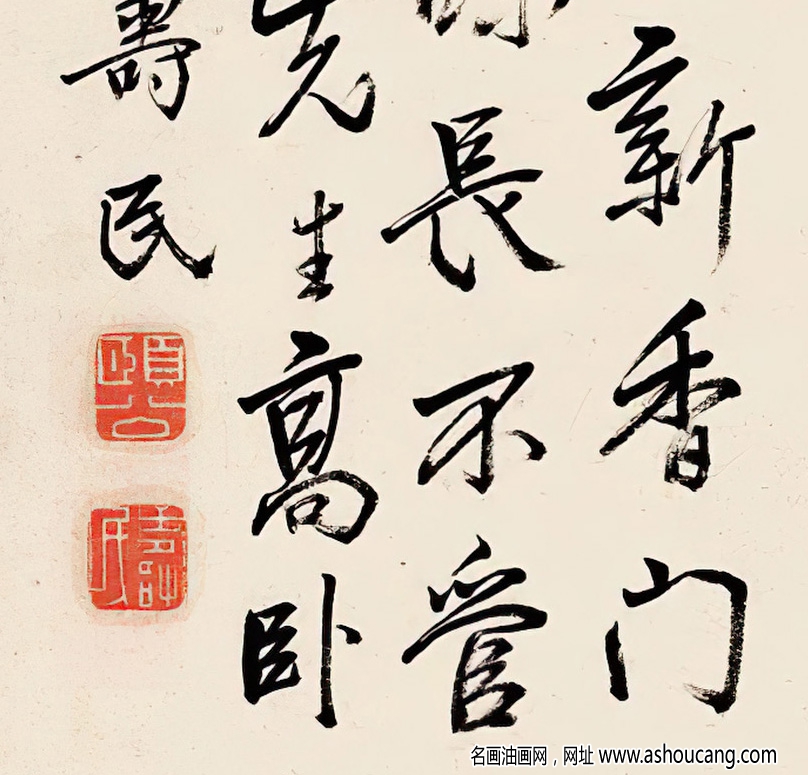 新香门
長不管
先生高卧
壽民
頤公
壽民
名画油画网，网址 www.ashoucang.com